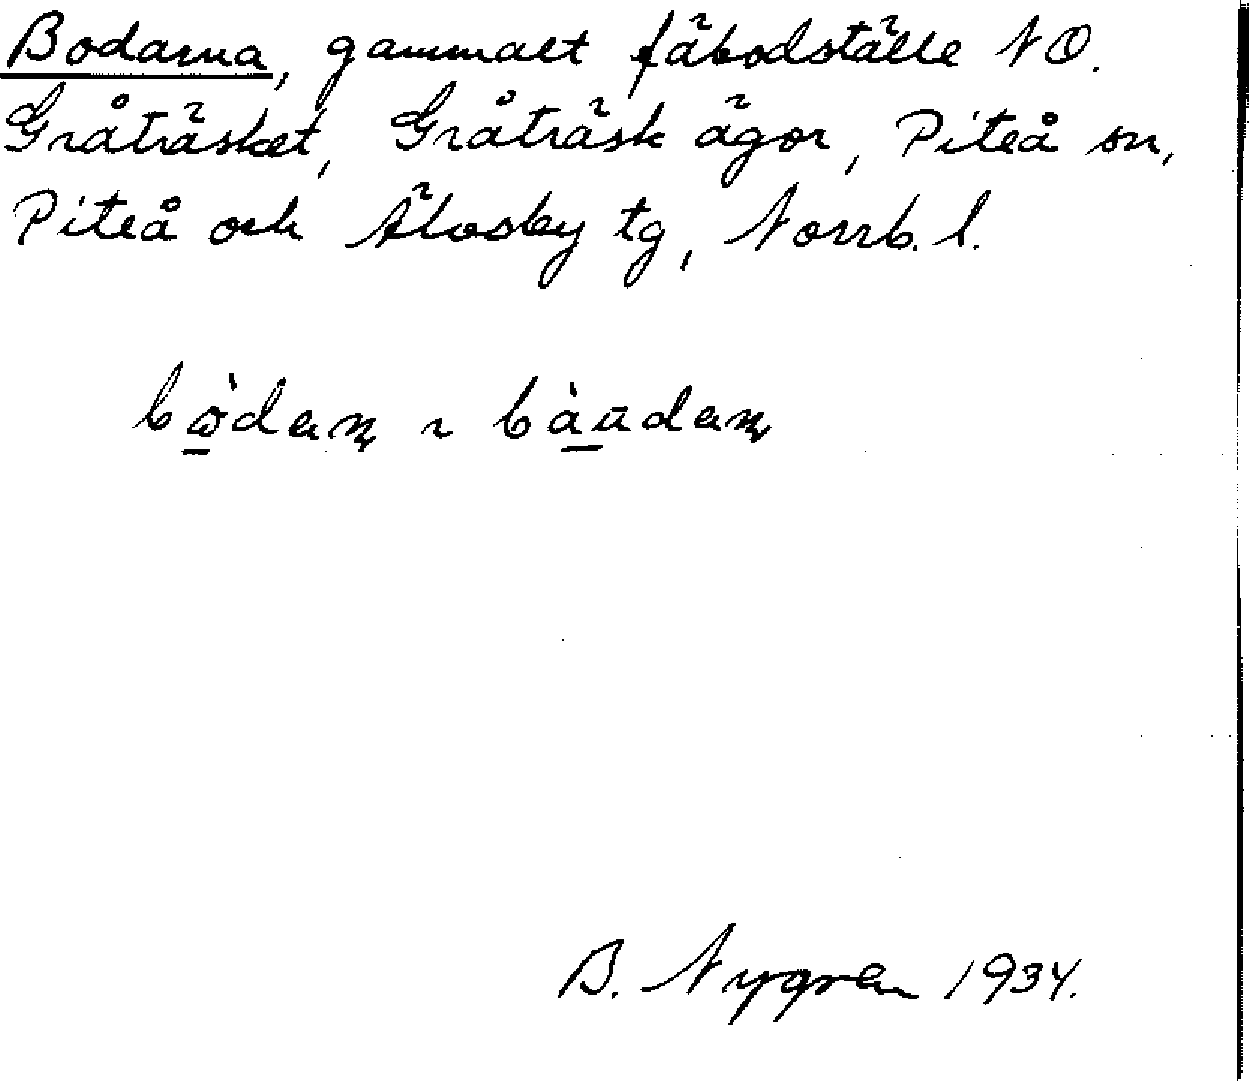 Bodarna, gammalt fäbodställe NO.
Gråträsket, Gråträsk ägor, Piteå sn,
Piteå och Älvsby tg, Norrb. l.
B. Nygren 1934.